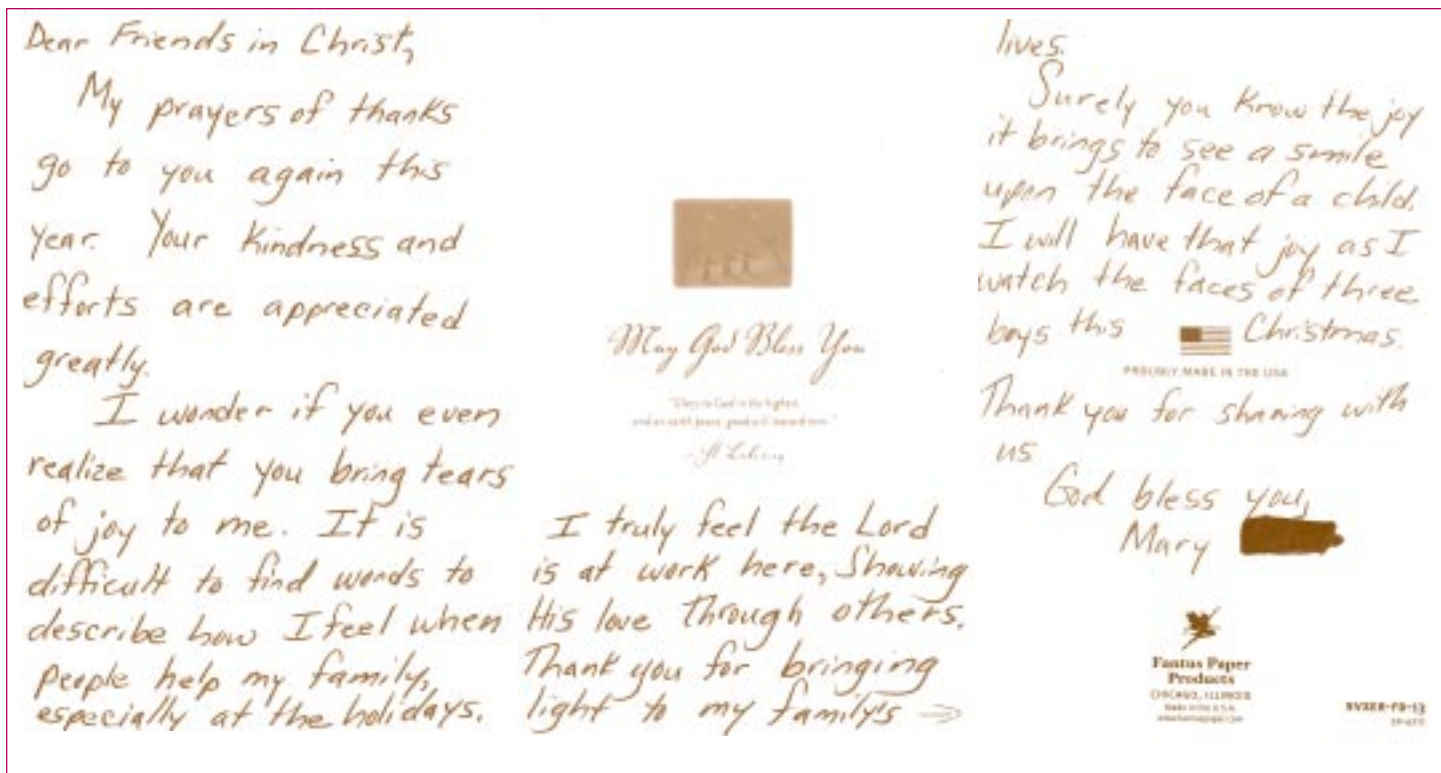 Dear Friends in Christ,
My prayers of thanks
go to you again this
year. Your kindness and
efforts are appreciated
greatly.
I wonder if you even
realize that you bring tears
of joy to me. It is
difficult to find words to
describe how I feel when
people help my family,
especially at the holidays.
May God Bless You
"Glory to God in the highest,
and on earth peace, good will toward men."
I truly feel the Lord
is at work here, Showing
His love through others.
Thank you for bringing
light to my family's
lives.
Surely you know the joy
it brings to see a smile
upon the face of a child.
I will have that joy as I
watch the faces of three
boys this Christmas.
PROUDLY MADE IN THE USA
Thank you for sharing with
us
God bless you,
Mary
Fantus Paper
Products
CHICAGO, ILLINOIS
Made in the U.S.A.